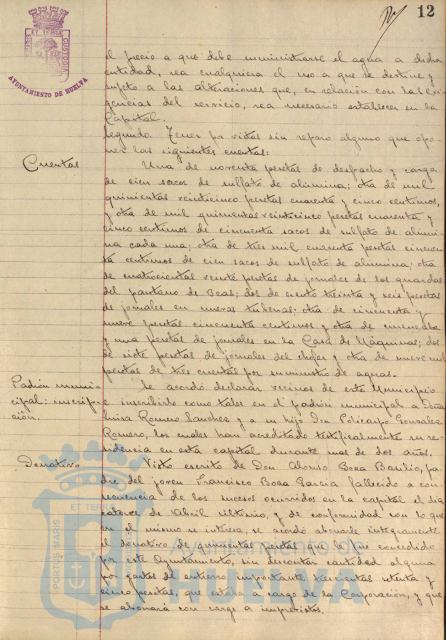 12
AYUNTAMIENTO DE HUELVA
el precio a que debe suministrarse el agua a dicha
entidad, sea cualquiera el uso a que se destine y
sujeto a las alteraciones que, en relación con las exi-
gencias del servicio, sea necesario establecer en la
Capital.
Segundo. Tener ya vistas sin reparo alguno que opo-
ner las siguientes cuentas:
Cuentas
Una de noventa pesetas de despacho y carga
de cien sacos de sulfato de alumina; otra de mil
quinientas veinticinco pesetas cuarenta y cinco centimos,
y otra de mil quinientas veinticinco pesetas cuarenta y
cinco centimos de cincuenta sacos de sulfato de alumi-
na cada una; otra de tres mil cuarenta pesetas cincuen-
ta centimos de cien sacos de sulfato de alumina; otra
de cuatrocientas veinte pesetas de jornales de los guardas
del pantano de Beas; dos de ciento treinta y seis pesetas
de jornales en nuevas tuberias; otra de cincuenta y
nueve pesetas cincuenta centimos y otra de cincuenta
y una pesetas de jornales en la Casa de Máquinas; dos
de siete pesetas de jornales del chofer y otra de nueve mil
pesetas de tres cuentas por suministro de aguas.
Padrón muni-
cipal: inscripci-
ón.
Se acordó declarar vecinos de este Municipio
e inscribirlo como tales en el padrón municipal a Doña
Luisa Romero Sanchez y a su hijo Don Policarpo Gonzalez
Romero, los cuales han acreditado testificalmente su re-
sidencia en esta capital durante mas de dos años.
Donativo
Visto escrito de Don Alonso Boza Banlio, pa-
dre del joven Francisco Boza Garcia fallecido a con-
secuencia de los sucesos ocurridos en la capital el dia
catorce de Abril ultimo, y de conformidad con lo que
en el mismo se interesa, se acordó abonarle integramente
el donativo de quinientas pesetas que le fue concedido
por este Ayuntamiento, sin descontar cantidad alguna
por gastos de entierro, importante trescientas treinta y
cinco pesetas, que estará a cargo de la Corporación, y que
se abonará con cargo a imprevistos.
PORTUS MARIS
ET TERRÆ
Ayuntamiento de
HUELVA